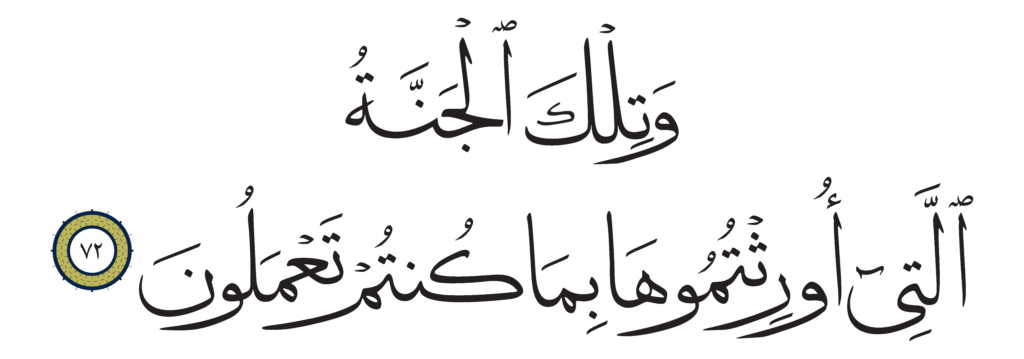 وَتِلْكَ ٱلْجَنَّةُ
ٱلَّتِىٓ أُورِثْتُمُوهَا بِمَا كُنتُمْ تَعْمَلُونَ ٧٢